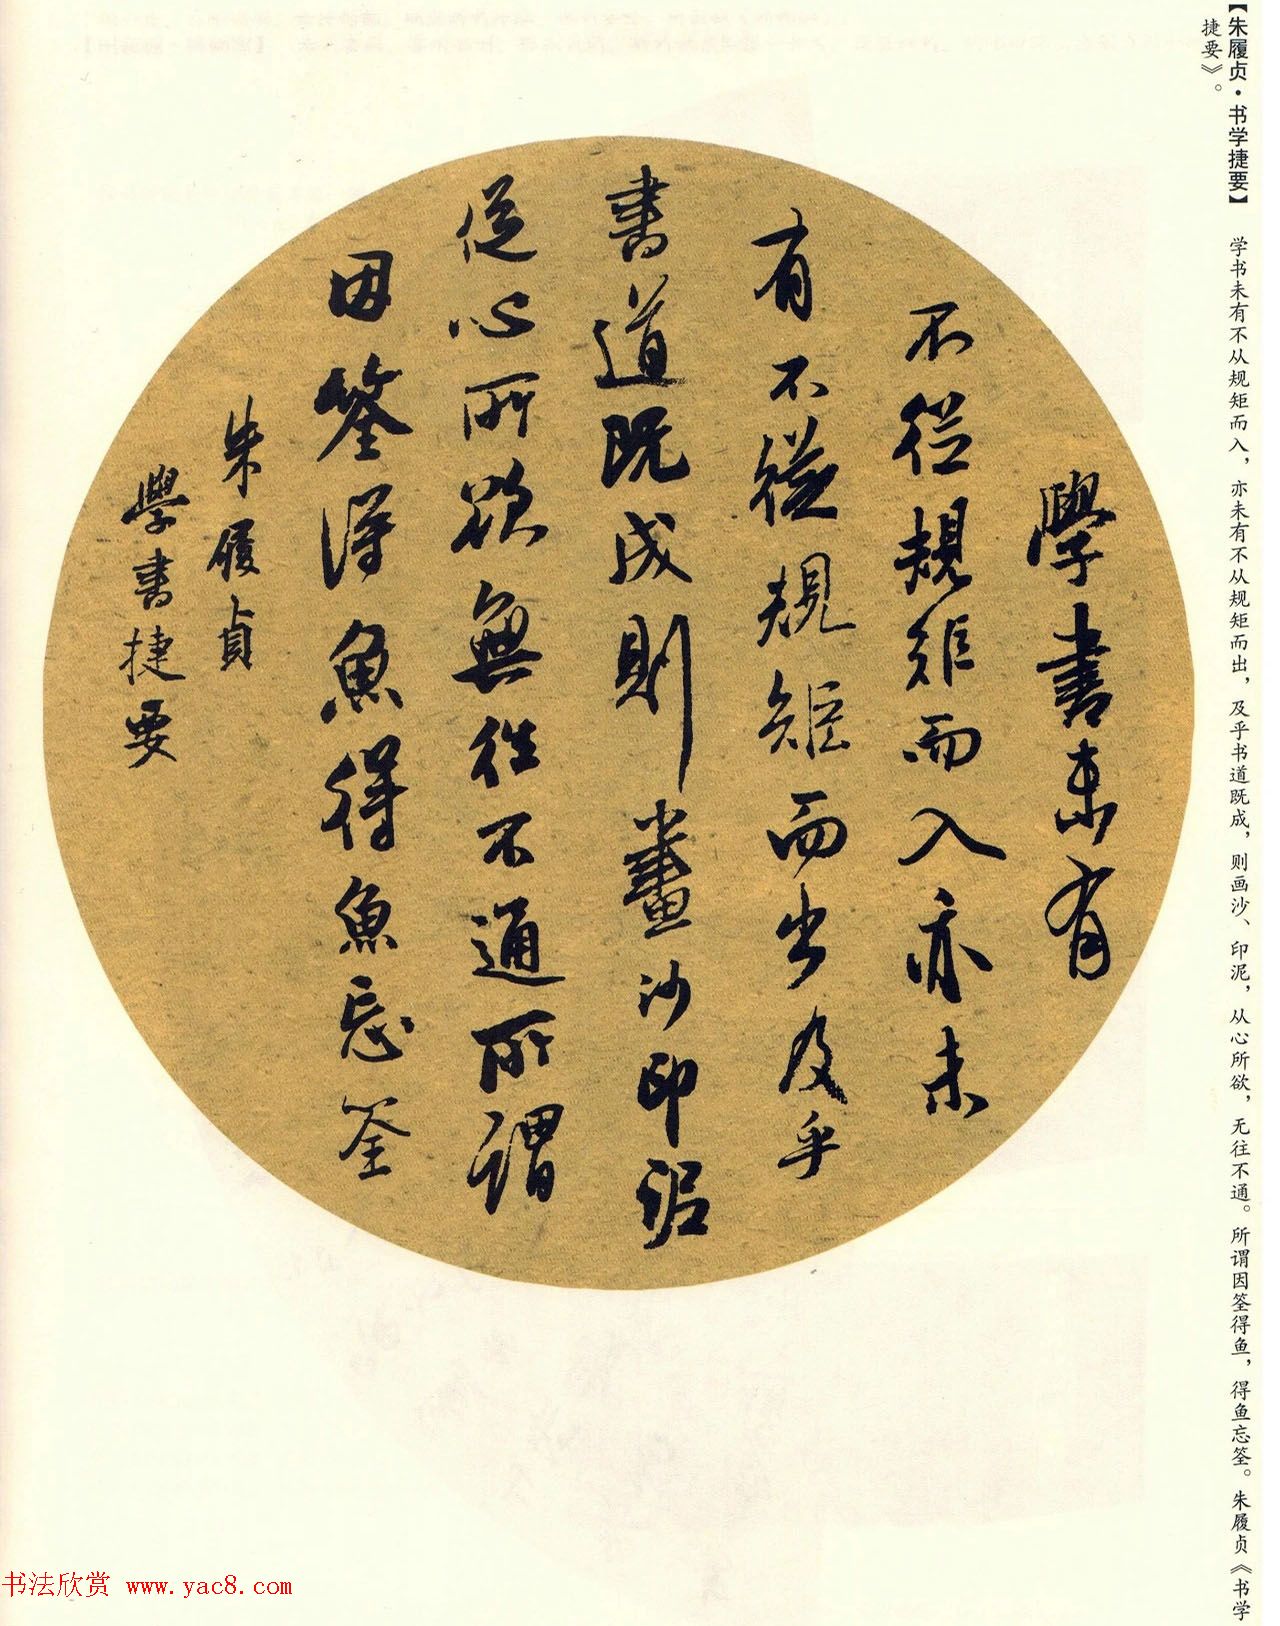 【朱履贞·书学捷要】 学书未有不从规矩而入，亦未有不从规矩而出，及乎书道既成，则画沙、印泥，从心所欲，无往不通。所谓因筌得鱼，得鱼忘筌。朱履贞《书学
捷要》。
學書未有
不從規矩而入亦未
有不從規矩而出及乎
書道既成則畫沙印泥
從心所欲無往不通所謂
因筌得魚得魚忘筌
朱履貞
學書捷要
书法欣赏 www.yac8.com